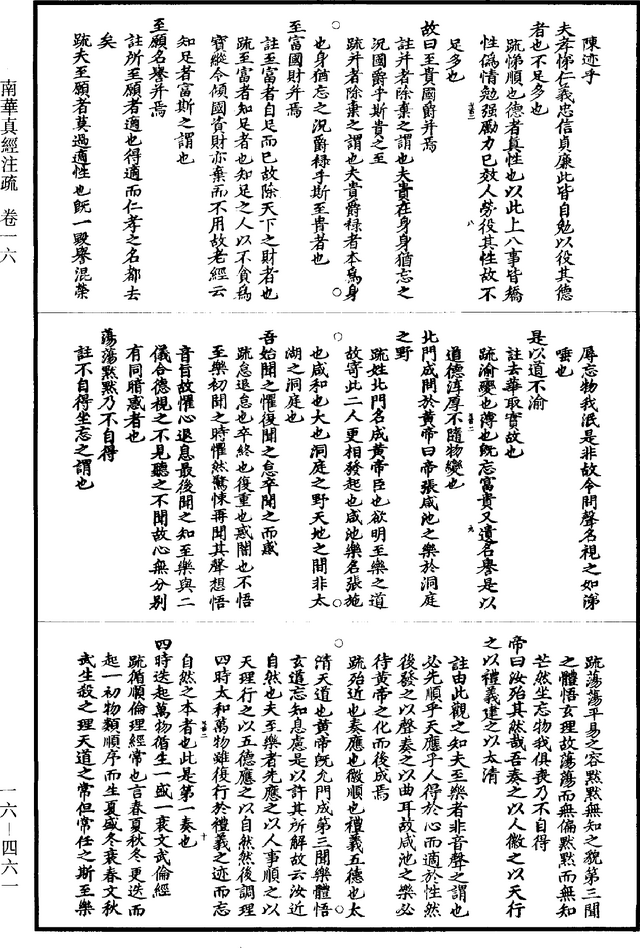 南華真經注疏　卷一六
一六—四六一
陳迹乎
夫孝悌仁義忠信貞廉此皆自勉以役其德
者也不足多也
疏悌順也德者真性也以此上八事皆矯
性偽情勉强勵力已效人勞役其性故不
足多也
故曰至貴國爵并焉
註并者除棄之謂也夫貴在身身猶忘之
況國爵乎斯貴之至
疏并者除棄之謂也夫貴爵祿者本爲身
也身猶忘之況爵祿乎斯至貴者也
至富國財并焉
註至富者自足而已故除天下之財者也
疏至富者知足者也知足之人以不貪爲
寶縱令傾國資財亦棄而不用故老經云
知足者富斯之謂也
至願名譽并焉
註所至願者適也得適而仁孝之名都去
矣
疏夫至願者莫過適性也既一毀譽混榮
辱忘物我泯是非故令問聲名視之如涕
唾也
是以道不渝
註去華取實故也
疏渝變也薄也既忘富貴又遺名譽是以
道德淳厚不隨物變也
北門成問於黃帝曰帝張咸池之樂於洞庭
之野
疏姓北門名成黃帝臣也欲明至樂之道
故寄此二人更相發起也咸池樂名張施
也咸和也大也洞庭之野天地之間非太
湖之洞庭也
吾始聞之懼復聞之怠卒聞之而惑
疏怠退息也卒終也復重也惑闇也不悟
至樂初聞之時懼然驚悚再聞其聲想悟
音旨故懼心退息最後聞之知至樂與二
儀合德視之不見聽之不聞故心無分別
有同暗惑者也
蕩蕩默默乃不自得
註不自得坐忘之謂也
疏蕩蕩平易之容默默無知之貌第三聞
之體悟玄理故蕩蕩而無偏默默而無知
芒然坐忘物我俱喪乃不自得
帝曰汝殆其然哉吾奏之以人徵之以天行
之以禮義建之以太清
註由此觀之知夫至樂者非音聲之謂也
必先順乎天應乎人得於心而適於性然
後發之以聲奏之以曲耳故咸池之樂必
待黃帝之化而後成焉
疏殆近也奏應也徵順也禮義五德也太
清天道也黃帝既允門成第三聞樂體悟
玄道忘知息慮是以許其所解故云汝近
自然也夫至樂者先應之以人事順之以
天理行之以五德應之以自然然後調理
四時太和萬物雖復行於禮義之迹而忘
自然之本者也此是第一奏也
四時迭起萬物循生一盛一衰文武倫經
疏循順倫理經常也言春夏秋冬更迭而
起一切物類順序而生夏盛冬衰春文秋
武生殺之理天道之常但常任之斯至樂